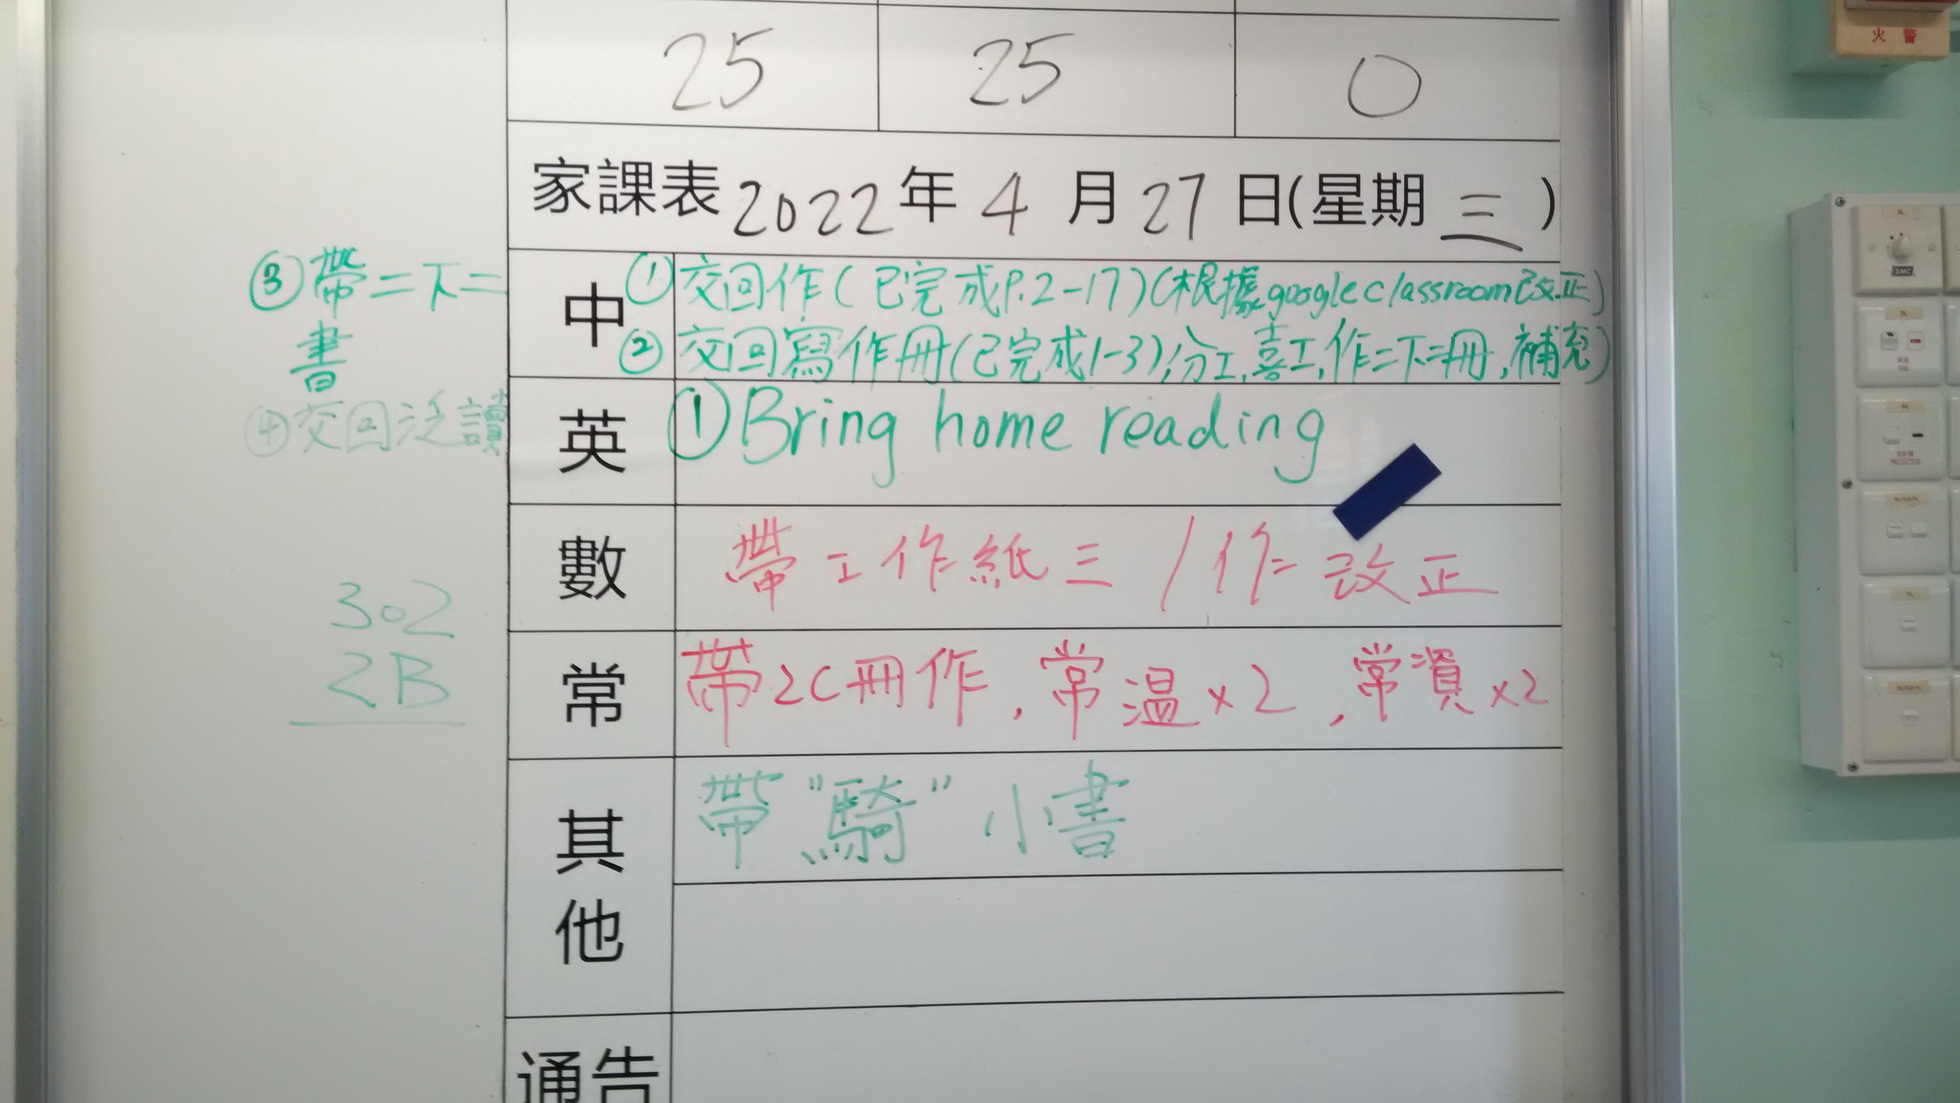 25 25 0
家課表 2022年 4月 27日(星期三)
中 ①交回作(已完成P.2-17)(根據google classroom改正)
②交回寫作冊(已完成1-3),分工,喜工,作二下二冊,補充)
③帶二下二
書
④交回泛讀
英 ①Bring home reading
數 帶工作紙三/作改正
常 帶2C冊作,常温x2,常資x2
302
2B
其他 帶"騎"小書
通告
火警